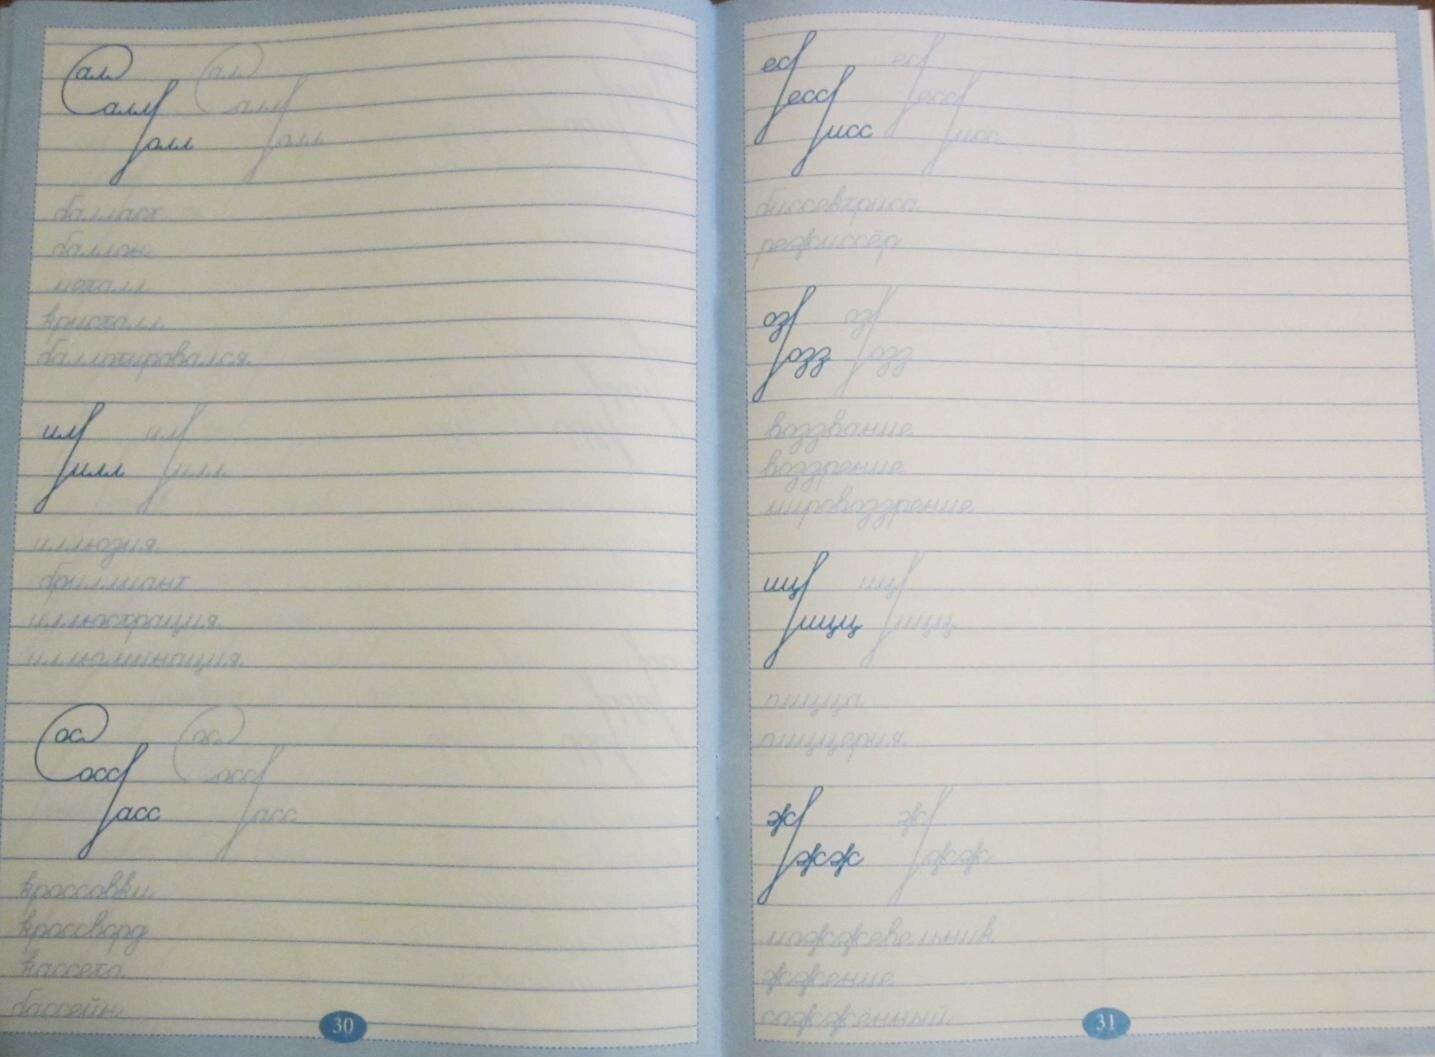 ал ал
алл алл
олл олл
балласт
баллон
металл
кристалл
баллотировался
ил ил
илл илл
иллюзия
бриллиант
иллюстрация
иллюминация
ос ос
осс осс
асс асс
кроссовки
кроссворд
кассета
бассейн
30
ес ес
есс есс
исс исс
биссектриса
режиссёр
оз оз
озз озз
воззвание
воззрение
мировоззрение
иц иц
ицц ицц
пицца
пиццерия
ж ж
жж жж
можжевельник
жжение
сожжённый
31